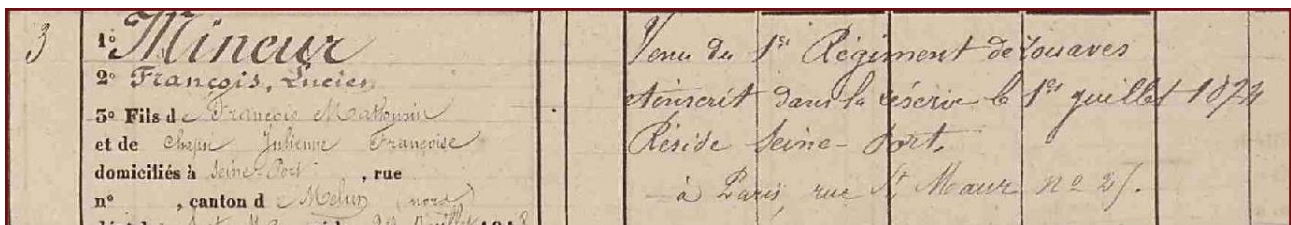 3
1° Mineur
2° François, Lucien
3° Fils de François Mathurin
et de Chapu Julienne Françoise
domiciliés à Seine-Port , rue
n° , canton de Melun (nord)
Venu du 1er Régiment de Zouaves
inscrit dans la réserve le 1er juillet 1874
Réside Seine-Port.
à Paris, rue St Maur no 25.